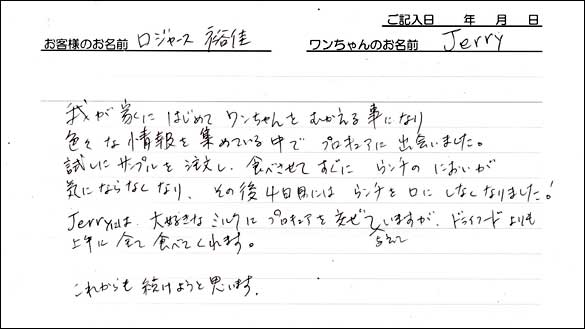 ご記入日 年 月 日
お客様のお名前 ロジャース 裕佳 ワンちゃんのお名前 Jerry
我が家にはじめて ワンちゃんを むかえる事になり
色々な情報を集めている中で プロキュアに出会いました。
試しにサンプルを注文し、食べさせてすぐに ウンチの においが
気にならなくなり、その後4日目には ウンチを口にしなくなりました!
Jerryは、大好きなミルクにプロキュアを交ぜて与えていますが、ドライフードよりも
上手に全て食べてくれます。
これからも続けようと思います。